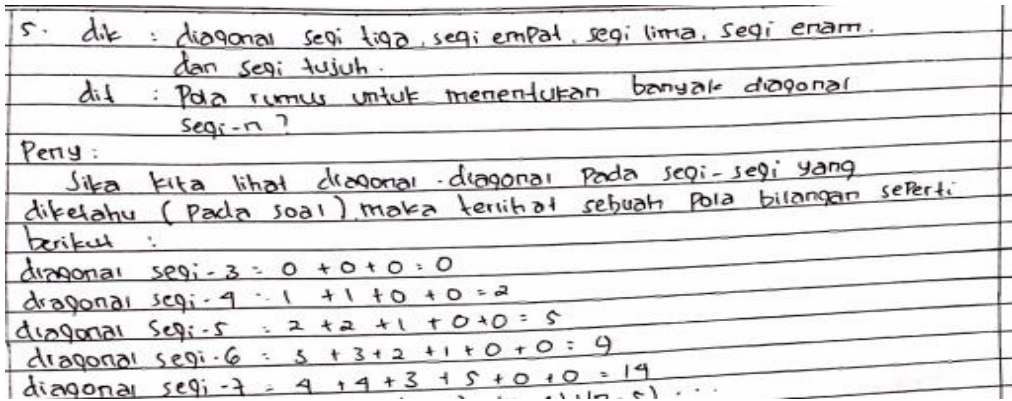 5. dik : diagonal segi tiga, segi empat, segi lima, segi enam.
dan segi tujuh.
dit : Pola rumus untuk menentukan banyak diagonal
segi-n ?
Peny :
Jika kita lihat diagonal-diagonal Pada segi-segi yang
diketahu ( Pada soal ) maka terlihat sebuah Pola bilangan seperti
berikut :
diagonal segi-3 = 0 + 0 + 0 = 0
diagonal segi-4 = 1 + 1 + 0 + 0 = 2
diagonal segi-5 = 2 + 2 + 1 + 0 + 0 = 5
diagonal segi-6 = 3 + 3 + 2 + 1 + 0 + 0 = 9
diagonal segi-7 = 4 + 4 + 3 + 5 + 0 + 0 = 14